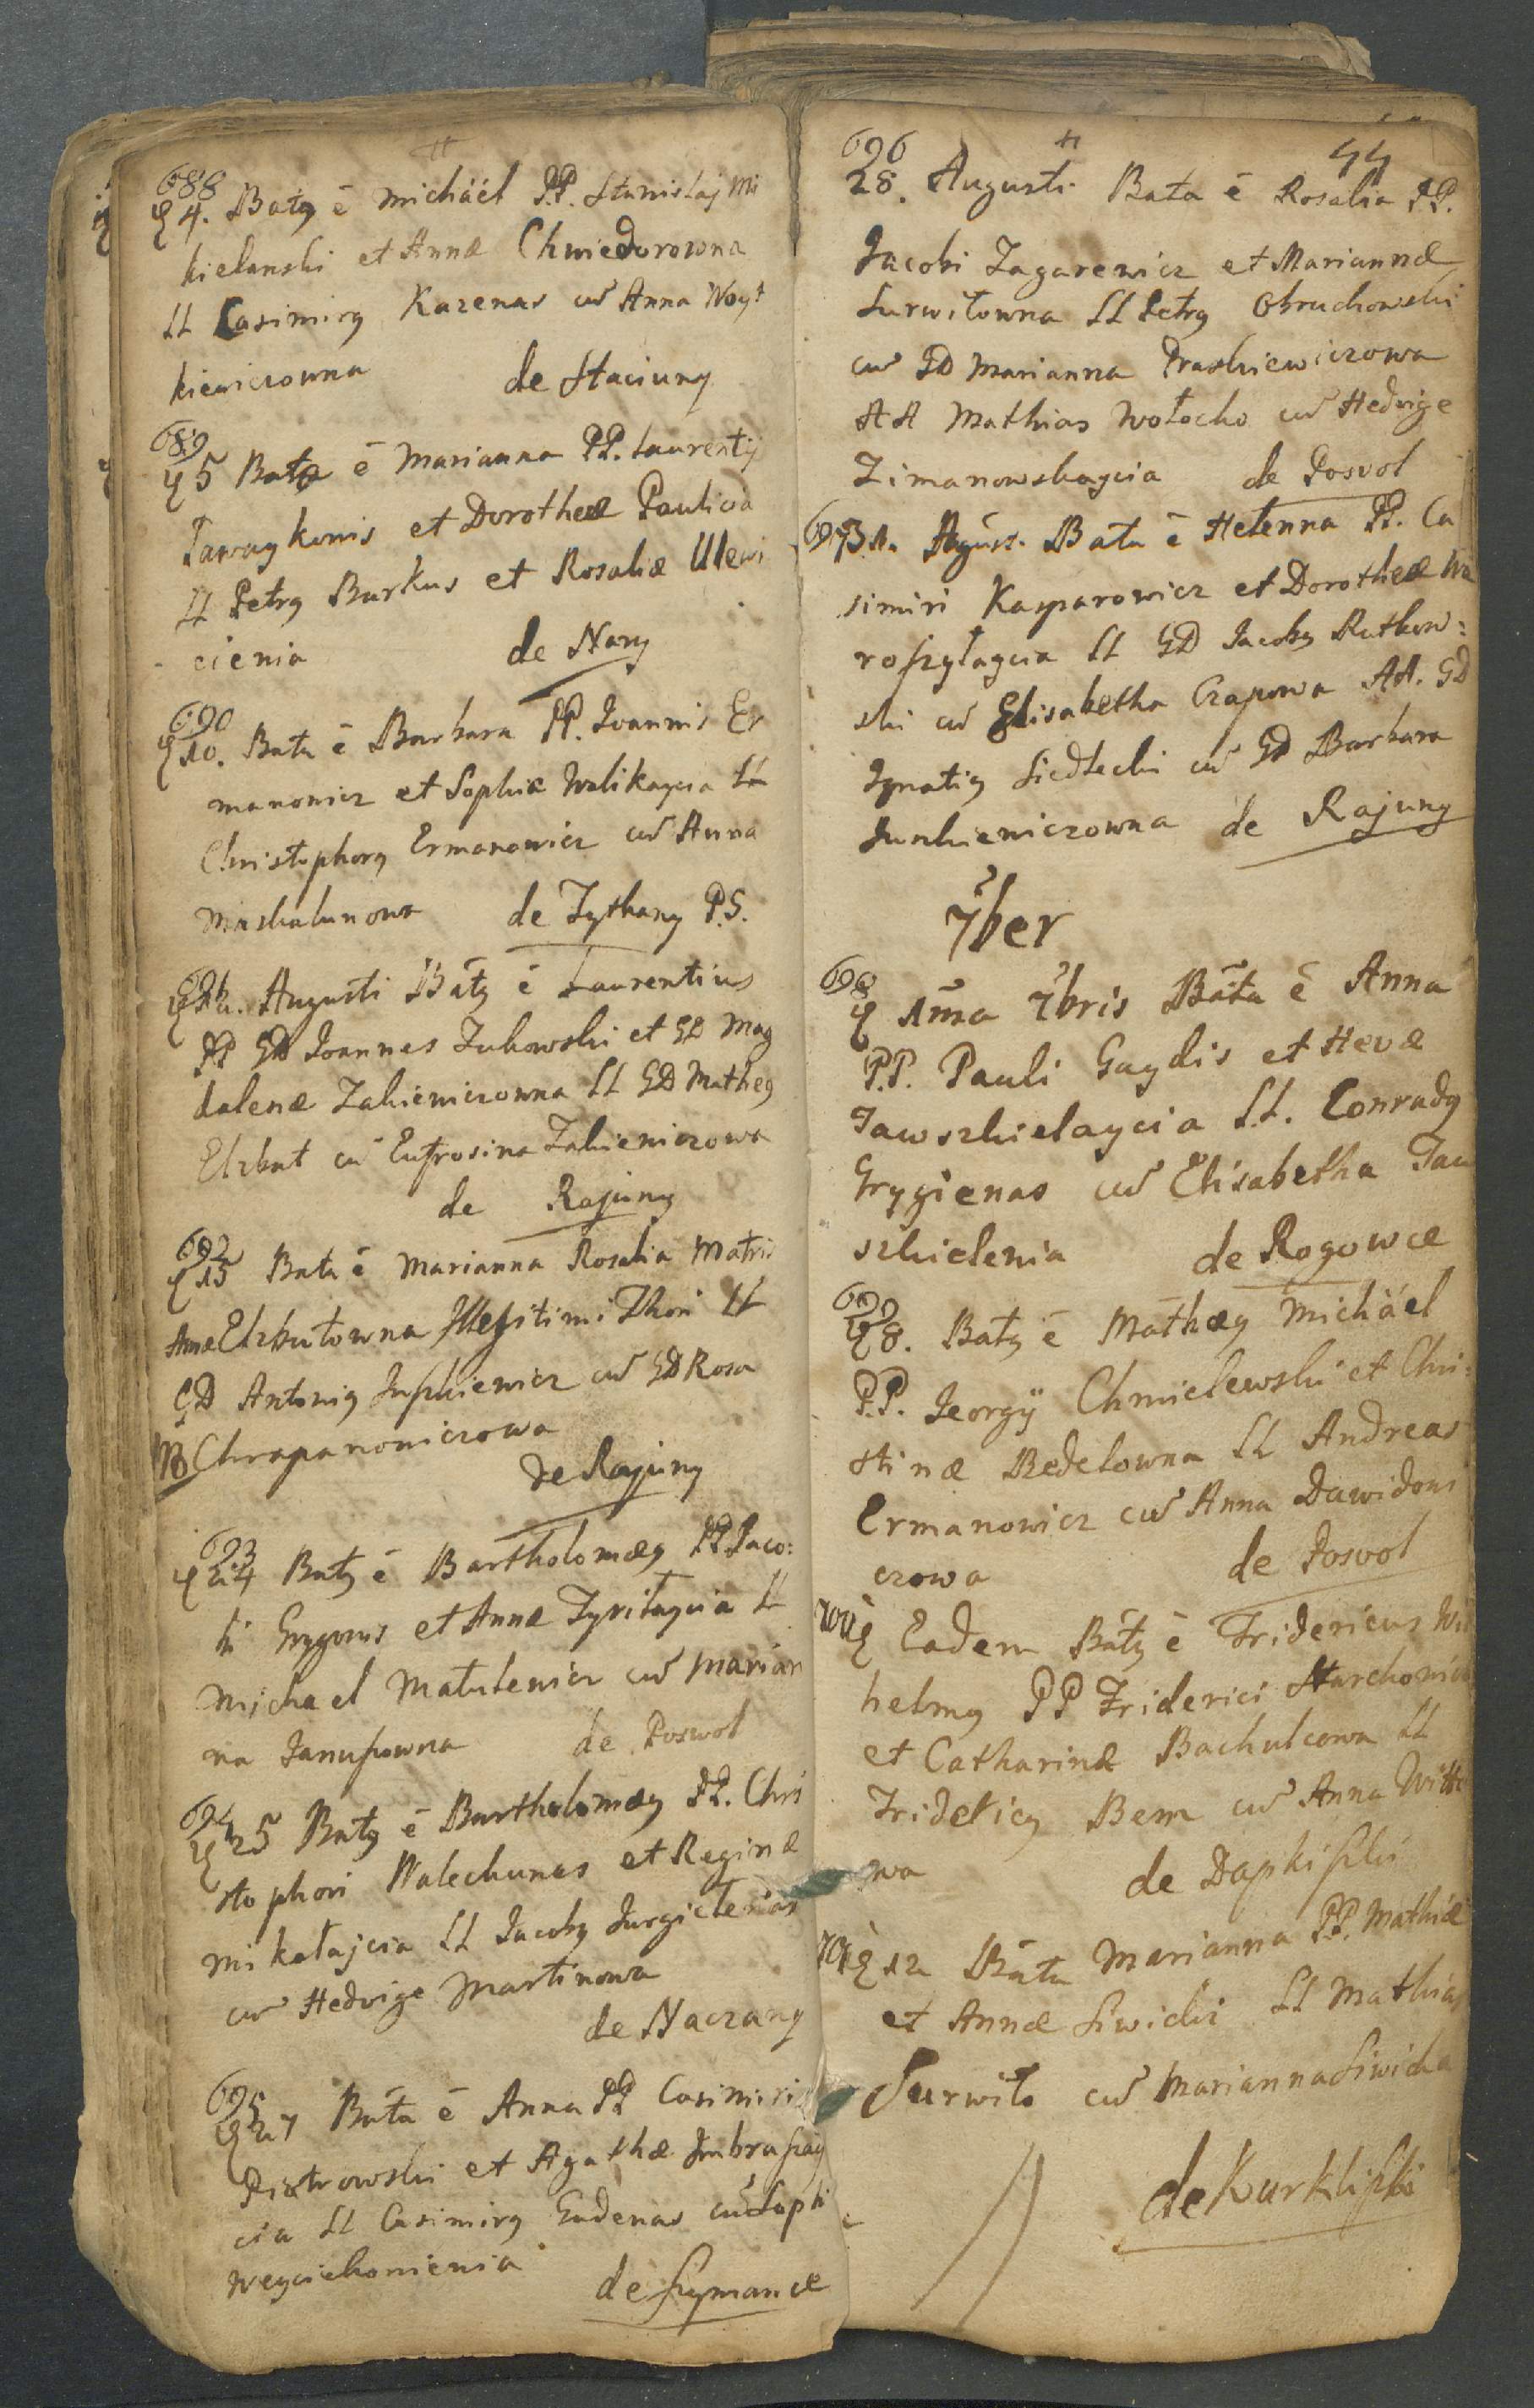 688
4. Baty ē Michäel PP. Stanislaj Mi
kielanski et Annæ Chwiedorowna
LL Casimiry Kazenas cū Anna Woyt
kiewiczowna de Staciuny
689
5 Bata ē Marianna PP. Laurentij
Tawaykonis et Dorotheæ
LL Petry Burkus et Rosaliæ Ulewi
cienia de Nary
690
10. Bata ē Barbara PP. Joannis Er
manowicz et Sophiæ Walikaycia LL
Christophory Ermanowicz cū Anna
de Zythany P.S.
Augusti Baty ē Laurentius
PP GD Joannes Zukowski et GD Mag
dalenæ Zabiewiczowna LL GD Mathey
Elzbut cū Eufrosina Zabieniczowa
de Rajuny
692
15 Bata ē Marianna Rosalia Matris
Annæ Elzbutowna Illegitimi Thori LL
GD Antoniy cū GD Rosa
NB Chrapanowiczowa
de Rajuny
693
24 Baty ē Bartholomæy PP. Jaco:
bi Grygonis et Annæ Zyvitaycia LL
Michael Matulewicz cū Marian
na Janupowna de Poswol
694
25 Baty ē Bartholomæy PP. Chri
stophori Walechunas et Reginæ
Mikołajcia LL Jacoby Jurgielenas
cū Hedvige Martinowa
de Naczany
695
27 Bata ē Anna PP Casimiri
Piotrowski et Agathæ Imbraszay
cia LL Casimiry Gudenas cū Sophi
Weyciekonienia
de Szymance
44
696
28. Augusti Bata ē Rosalia PP.
Jacobi Zagarewicz et Mariannæ
Surwiłowna LL Petry Obruchowski
cū GD Marianna Praskiewiczowa
AA Mathias Wołocko cū Hedvige
Zimanowskaycia de Posvol
697 31. August. Bata ē Helenna PP. Ca
simiri Kasparowicz et Dorotheæ Wa
roszyłaycia LL GD Jacoby Rutkow:
ski cū Elisabetha Czapowa AA. GD
Ignatiy Siedlecki cū GD Barbara
Junkiewiczowna de Rajuny
7ber
698
1ma 7bris Bata ē Anna
P.P. Pauli Gaydis et Hevæ
Jawszkielaycia LL. Conrady
Grygienas cū Elisabetha Jaw
szkielenia de Rogowce
699
8. Baty ē Mathæy Michäel
P.P. Georgÿ Chmielewski et Chri:
stinæ Bedelowna LL Andreas
Ermanowicz cū Anna Dawidowi
czowa de Posvol
700 Eadem Baty ē Fridericus Wil
helmy PP Friderici
et Catharinæ Bachulcowa LL
Fridericy Bem cū Anna Witte
wa de Dapkiszki
701 12 Bata Marianna PP. Mathiæ
et Annæ Siwicki LL Mathias
Surwiło cū Marianna Siwicka
de Kurkliszki